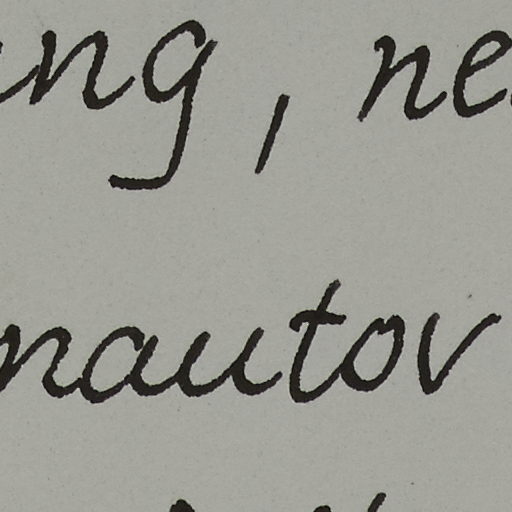 ng, ne
nautov